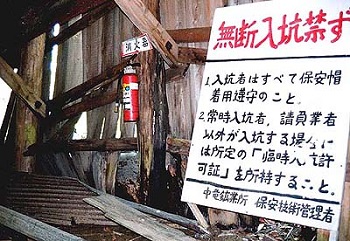 消火器
無断入坑禁ず
1.入坑者はすべて保安帽
着用遵守のこと。
2.常時入坑者,請負業者
以外が入坑する場合に
は所定の「臨時入坑許
可証」を所持すること。
中竜鉱業所 保安技術管理者